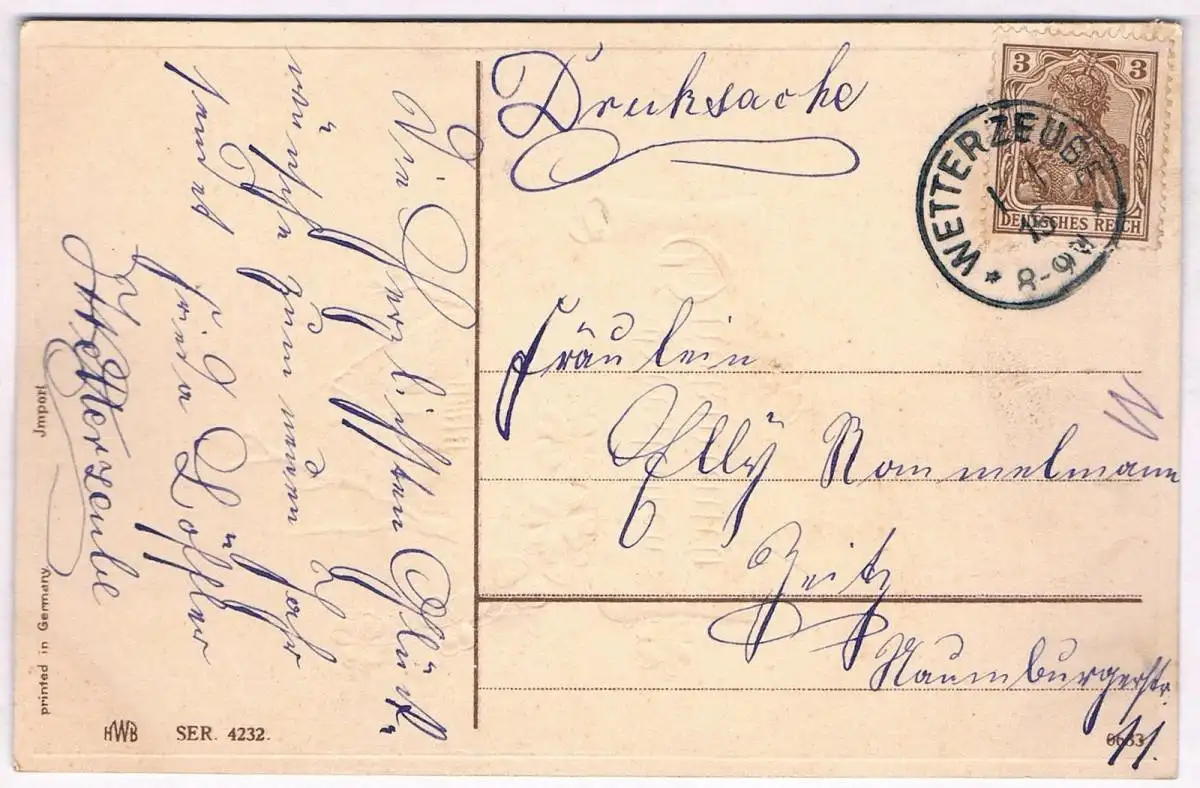 Druksache
3 3
DEUTSCHES REICH
* WETTERZEUBE *
1. 1. 13
8-9 V
Fräulein
Elly Rommelmann
Zeitz
Naumburgerstr.
11.
Die Herzlichsten Glück-
wünsche zum neuen Jahr
sendet Frieda Löffler
Wetterzeube
printed in Germany Jmport
HWB SER. 4232.
6633